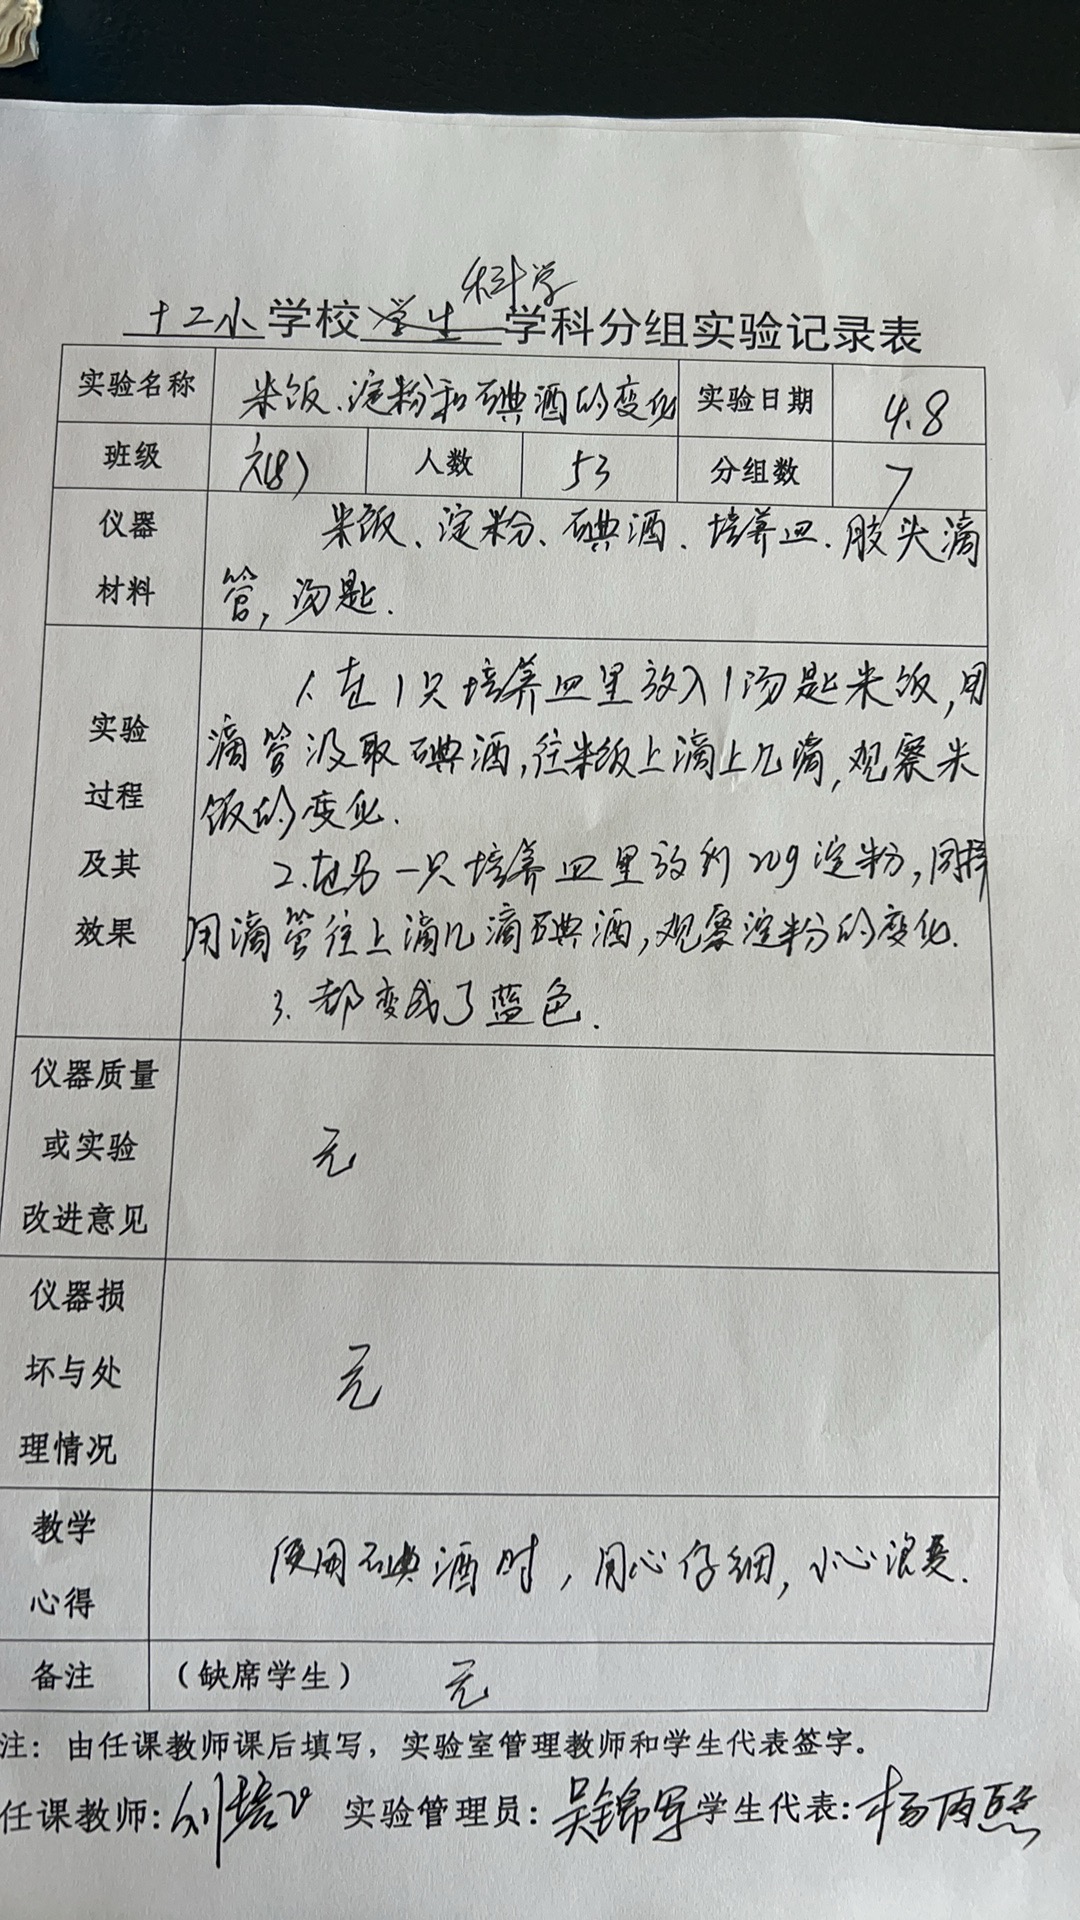 科学
十二小学校学生学科分组实验记录表
实验名称 米饭、淀粉和碘酒的变化 实验日期 4.8
班级 六(8) 人数 53 分组数 7
仪器 米饭、淀粉、碘酒、培养皿、胶头滴
材料 管,汤匙.
1.在1只培养皿里放入1汤匙米饭,用
实验 滴管汲取碘酒,往米饭上滴上几滴,观察米
过程 饭的变化.
及其 2.在另一只培养皿里放到20g淀粉,同样
效果 用滴管往上滴几滴碘酒,观察淀粉的变化.
3.都变成了蓝色.
仪器质量
或实验 无
改进意见
仪器损
坏与处 无
理情况
教学 使用碘酒时,用心仔细,小心浪费.
心得
备注 (缺席学生) 无
注:由任课教师课后填写,实验室管理教师和学生代表签字。
任课教师:刘培 实验管理员:吴锦军 学生代表:杨雨熙